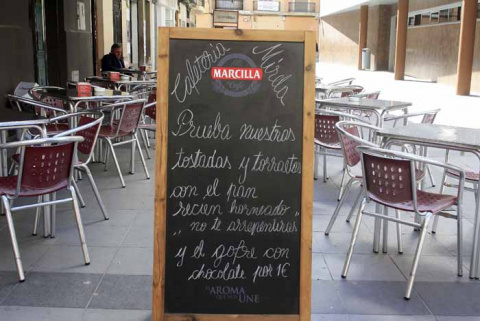 Cafetería Mérida
MARCILLA
Prueba nuestras
tostadas y torraetas
con el pan
recien horneado,,
,, no te arrepentiras
y el gofre con
chocolate por 1€
EL AROMA
QUE NOS UNE